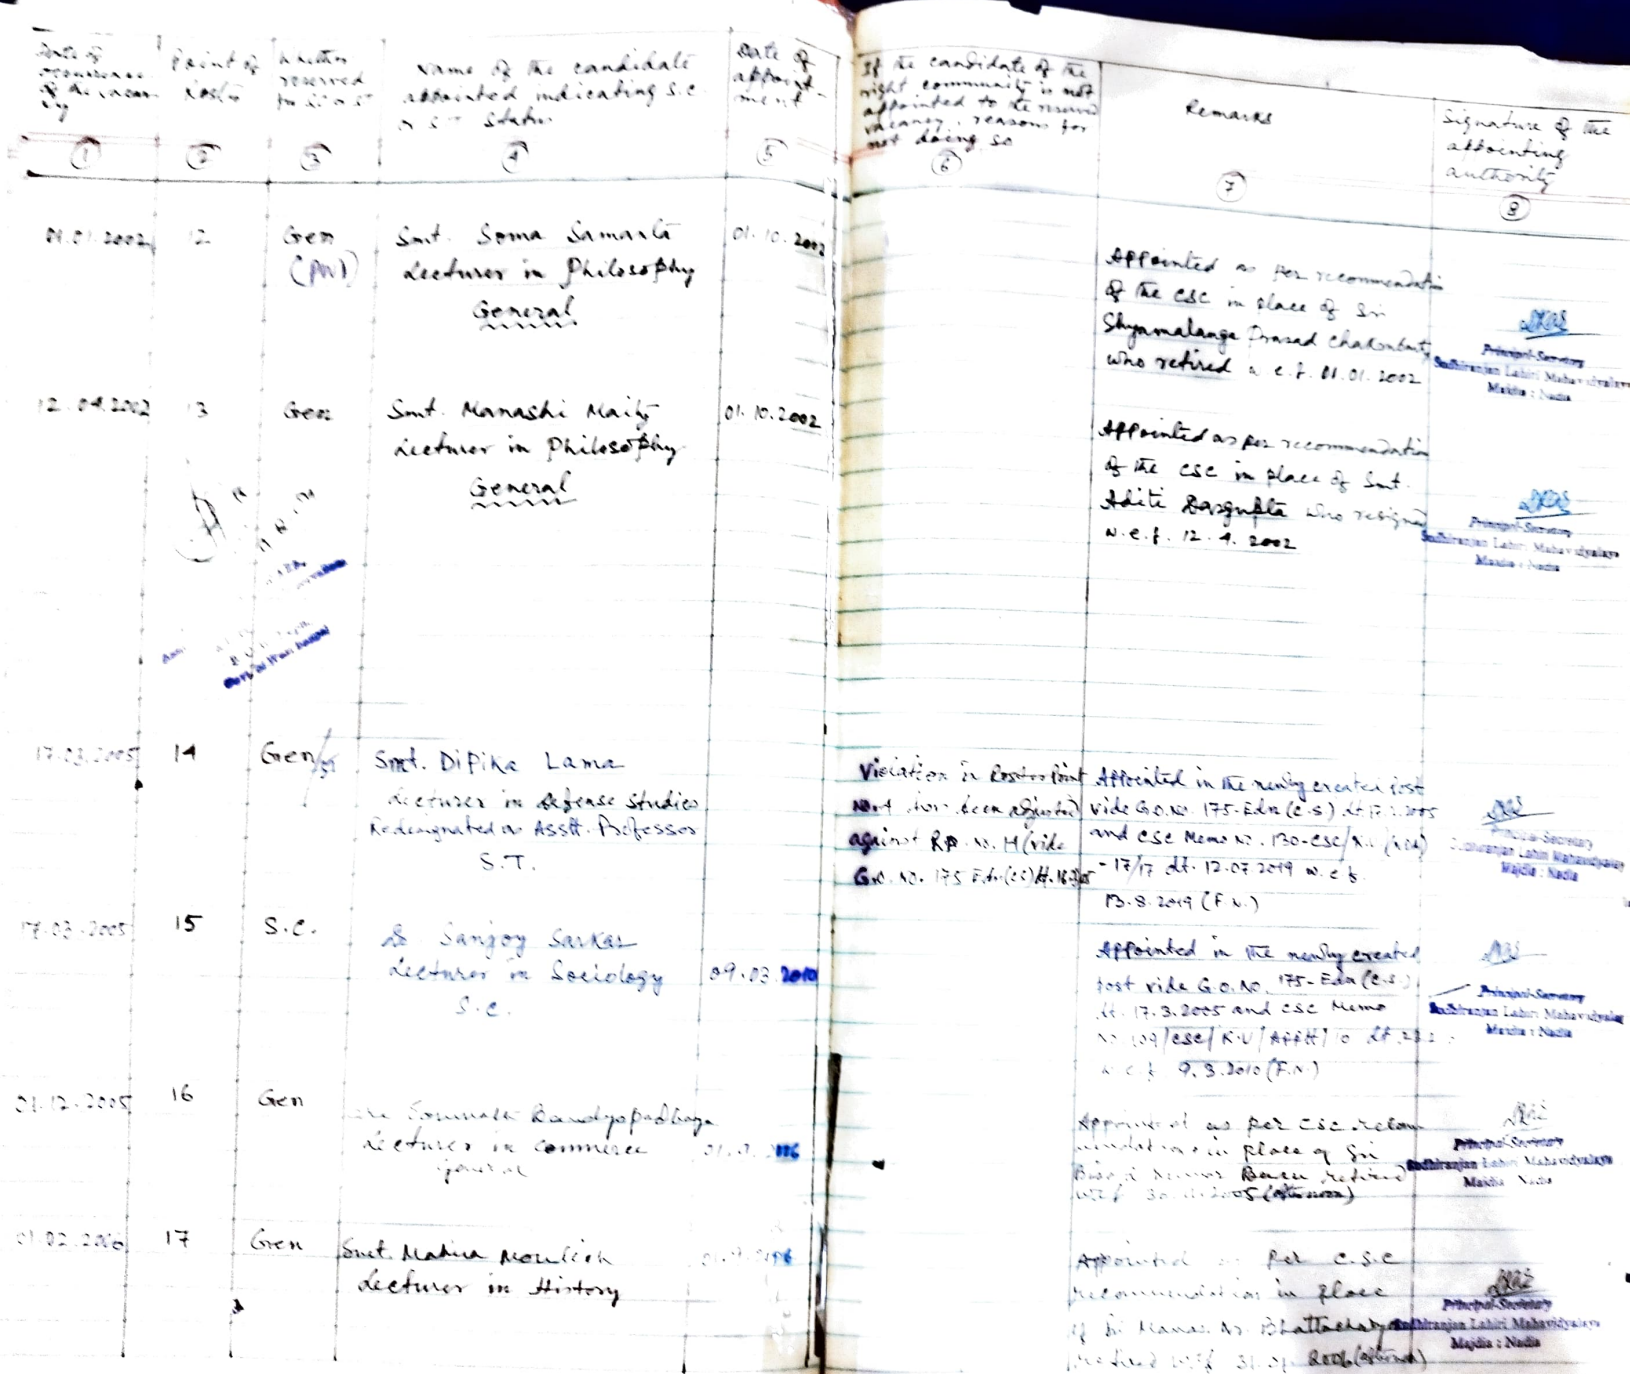 Date of
occurrence
of the vacan-
cy
①
Point of
Roster
②
Whether
reserved
for SC or ST
③
Name of the candidate
appointed indicating S.C.
or S.T status
④
Date of
appoint-
ment
⑤
If the candidate of the
right community is not
appointed to the reserved
vacancy, reasons for
not doing so
⑥
Remarks
⑦
Signature of the
appointing
authority
⑧
01.01.2002
12
Gen
Smt. Soma Samanta
Lecturer in Philosophy
General
01.10.2002
Appointed as per recommendation
of the CSC in place of Sri
Shyamalange Prasad Chakraborty
who retired w.e.f. 01.01.2002
Principal-Secretary
Sudhiranjan Lahiri Mahavidyalaya
Majdia : Nadia
12.04.2002
13
Gen
Smt. Manashi Maity
Lecturer in Philosophy
General
01.10.2002
Appointed as per recommendation
of the CSC in place of Smt.
Aditi Dasgupta who resigned
w.e.f. 12.4.2002
Principal-Secretary
Sudhiranjan Lahiri Mahavidyalaya
Majdia : Nadia
Govt. of West Bengal
17.03.2005
14
Gen/
Smt. Dipika Lama
Lecturer in Defense Studies
Redesignated as Asstt. Professor
S.T.
Violation in Roster Point
No. 4 has been adjusted
against R.P. No. 14 (vide
G.O. No. 175 Edn.(CS) dt.
Appointed in the newly created post
vide G.O. No. 175-Edn (C.S.) dt 17.3.2005
and CSC Memo No. 130-CSC/
-17/17 dt. 12.07.2019 w.e.f.
13.8.2019 (F.N.)
Principal-Secretary
Sudhiranjan Lahiri Mahavidyalaya
Majdia : Nadia
17.03.2005
15
S.C.
Dr Sanjoy Sarkar
Lecturer in Sociology
S.C.
09.03.2010
Appointed in the newly created
post vide G.O. No. 175-Edn (C.S.)
dt. 17.3.2005 and CSC Memo
No. 109/CSC/K.U/Apptt/10 dt.
w.e.f. 9.3.2010 (F.N.)
Principal-Secretary
Sudhiranjan Lahiri Mahavidyalaya
Majdia : Nadia
01.12.2005
16
Gen
Somnath Bandyopadhyay
Lecturer in Commerce
General
Appointed as per CSC recom
mendation in place of Sri
Kumar Basu retired
w.e.f 30.11.2005 (afternoon)
Principal-Secretary
Sudhiranjan Lahiri Mahavidyalaya
Majdia : Nadia
01.02.2006
17
Gen
Smt. Mahua Moulick
Lecturer in History
Appointed as Per C.S.C
recommendation in place
of Sri Manas Bhattacharya
retired w.e.f 31.01.2006 (afternoon)
Principal-Secretary
Sudhiranjan Lahiri Mahavidyalaya
Majdia : Nadia